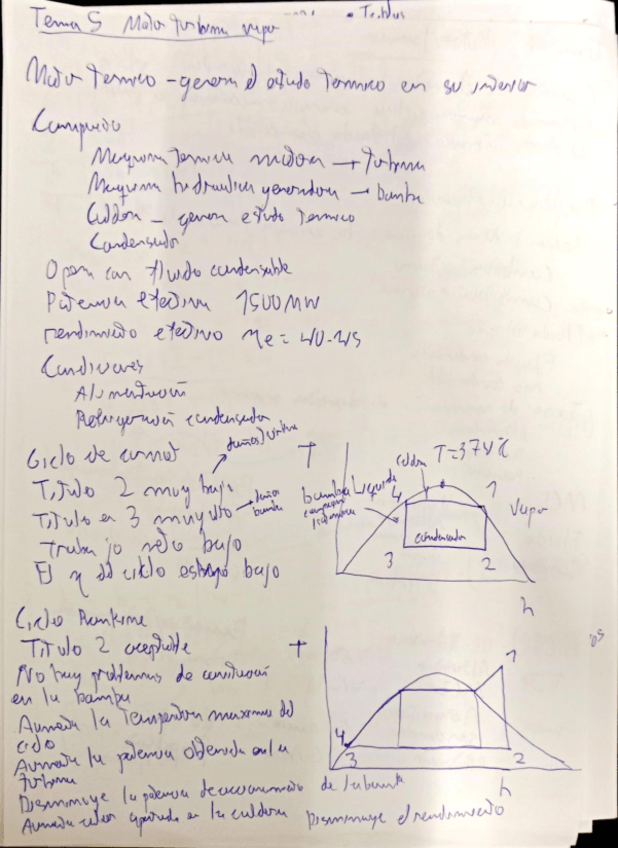 Tema 5 Motor turbina vapor
Motor termico - genera el estado termico en su interior
Compuesto
Maquina termica motora → turbina
Maquina hidraulica generadora → bomba
Caldera - genera estado termico
Condensador
Opera con fluido condensable
Potencia efectiva 1500MW
rendimiento efectivo ηe = 40-45
Condiciones
Alimentación
Refrigeración condensador
Ciclo de carnot
Titulo 2 muy bajo → daños turbina
Titulo en 3 muy alto → daños bomba
Trabajo neto bajo
El η del ciclo bajo
T
caldera T=374ºC
bomba Liquido 4 1 Vapor
condensador
3 2
h
Ciclo Rankine
Titulo 2 aceptable
No hay problemas de cavitación
en la bomba
Aumenta la Temperatura maxima del
ciclo
Aumenta la potencia obtenida en la
turbina
Disminuye la potencia de accionamiento de la bomba
Aumenta calor aportado en la caldera Disminuye el rendimiento
T
1
4
3 2
h